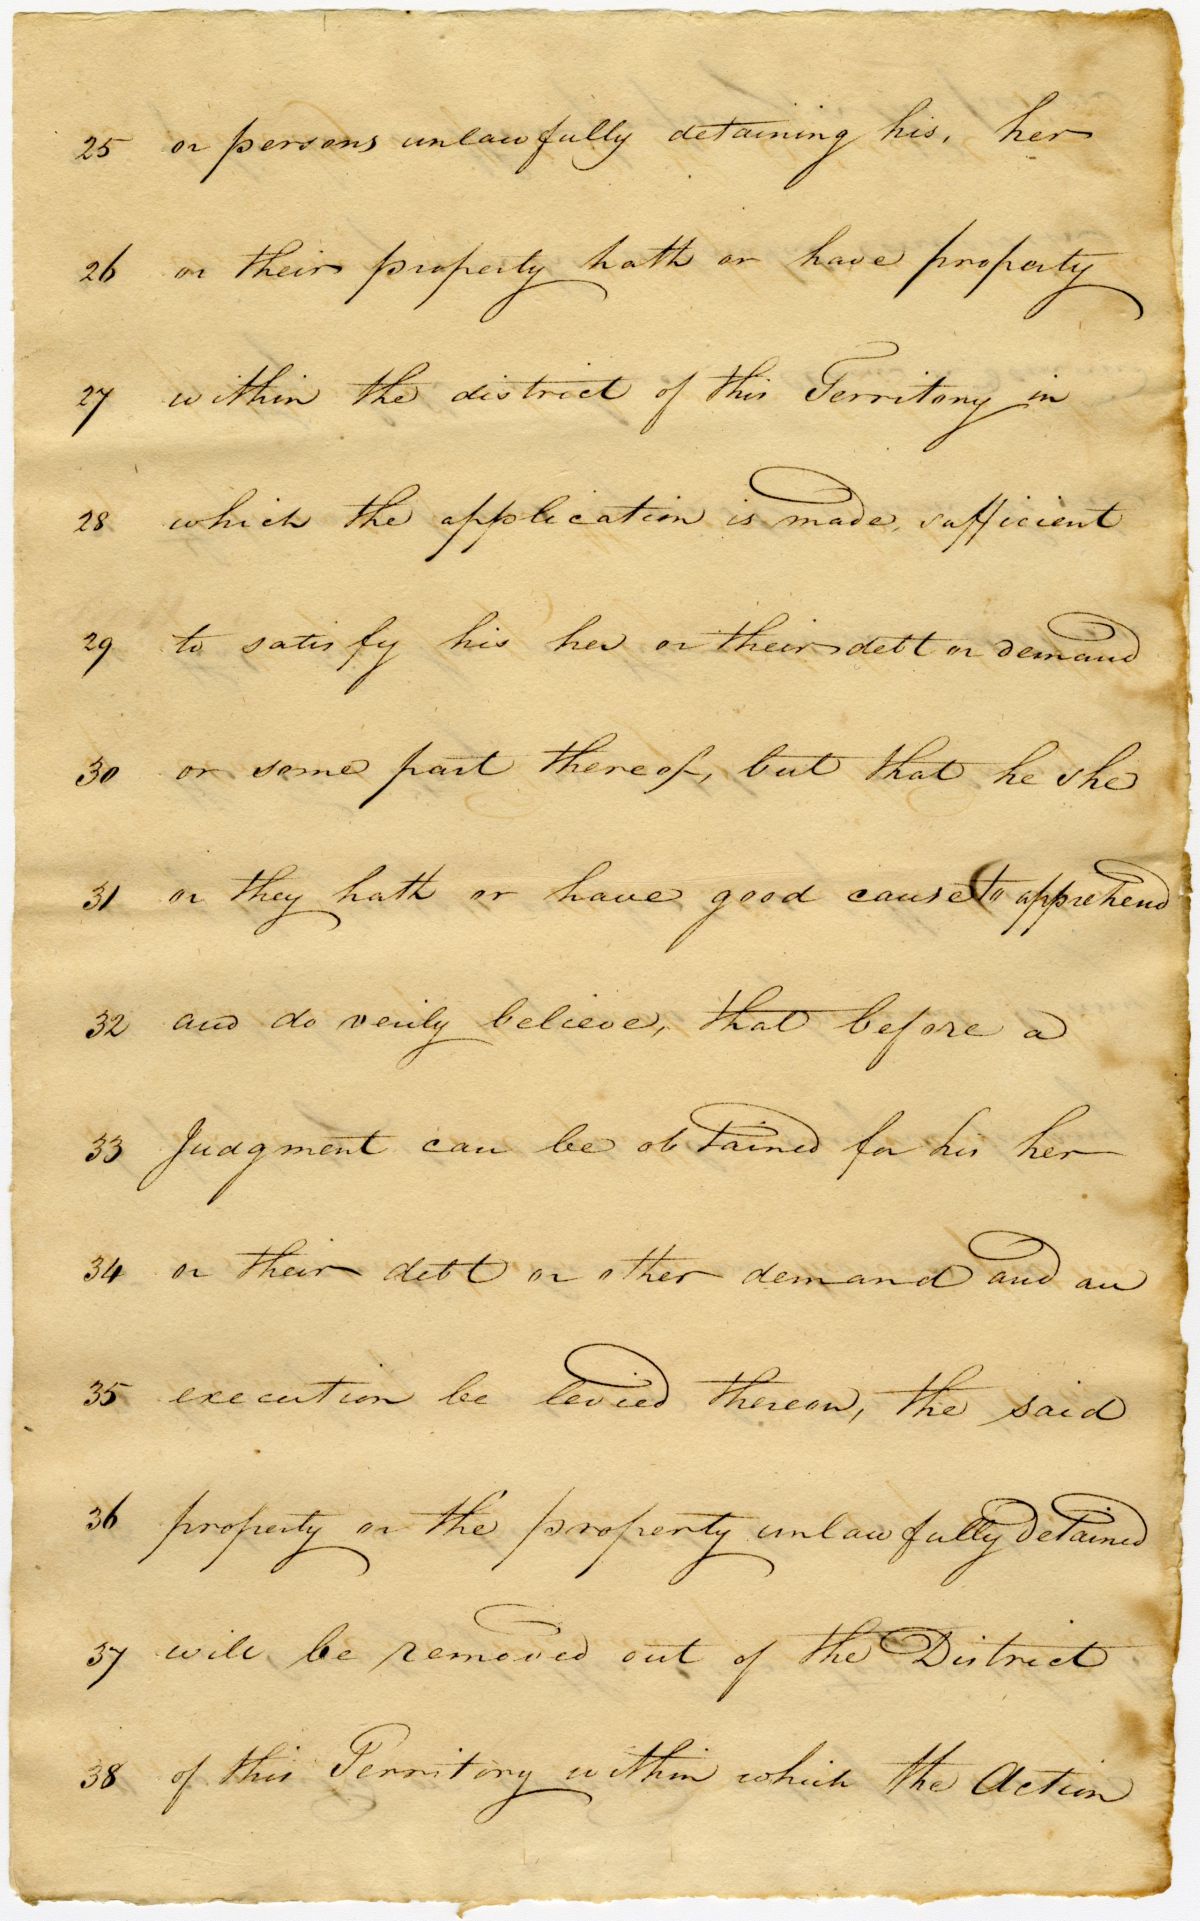 25 or persons unlawfully detaining his, her
26 or their property hath or have property
27 within the district of this Territory in
28 which the application is made, sufficient
29 to satisfy his her or their debt or demand
30 or some part thereof, but that he she
31 or they hath or have good cause to apprehend
32 and do verily believe, that before a
33 Judgment can be obtained for his her
34 or their debt or other demand and an
35 execution be levied thereon, the said
36 property or the property unlawfully detained
37 will be removed out of the District
38 of this Territory within which the Action